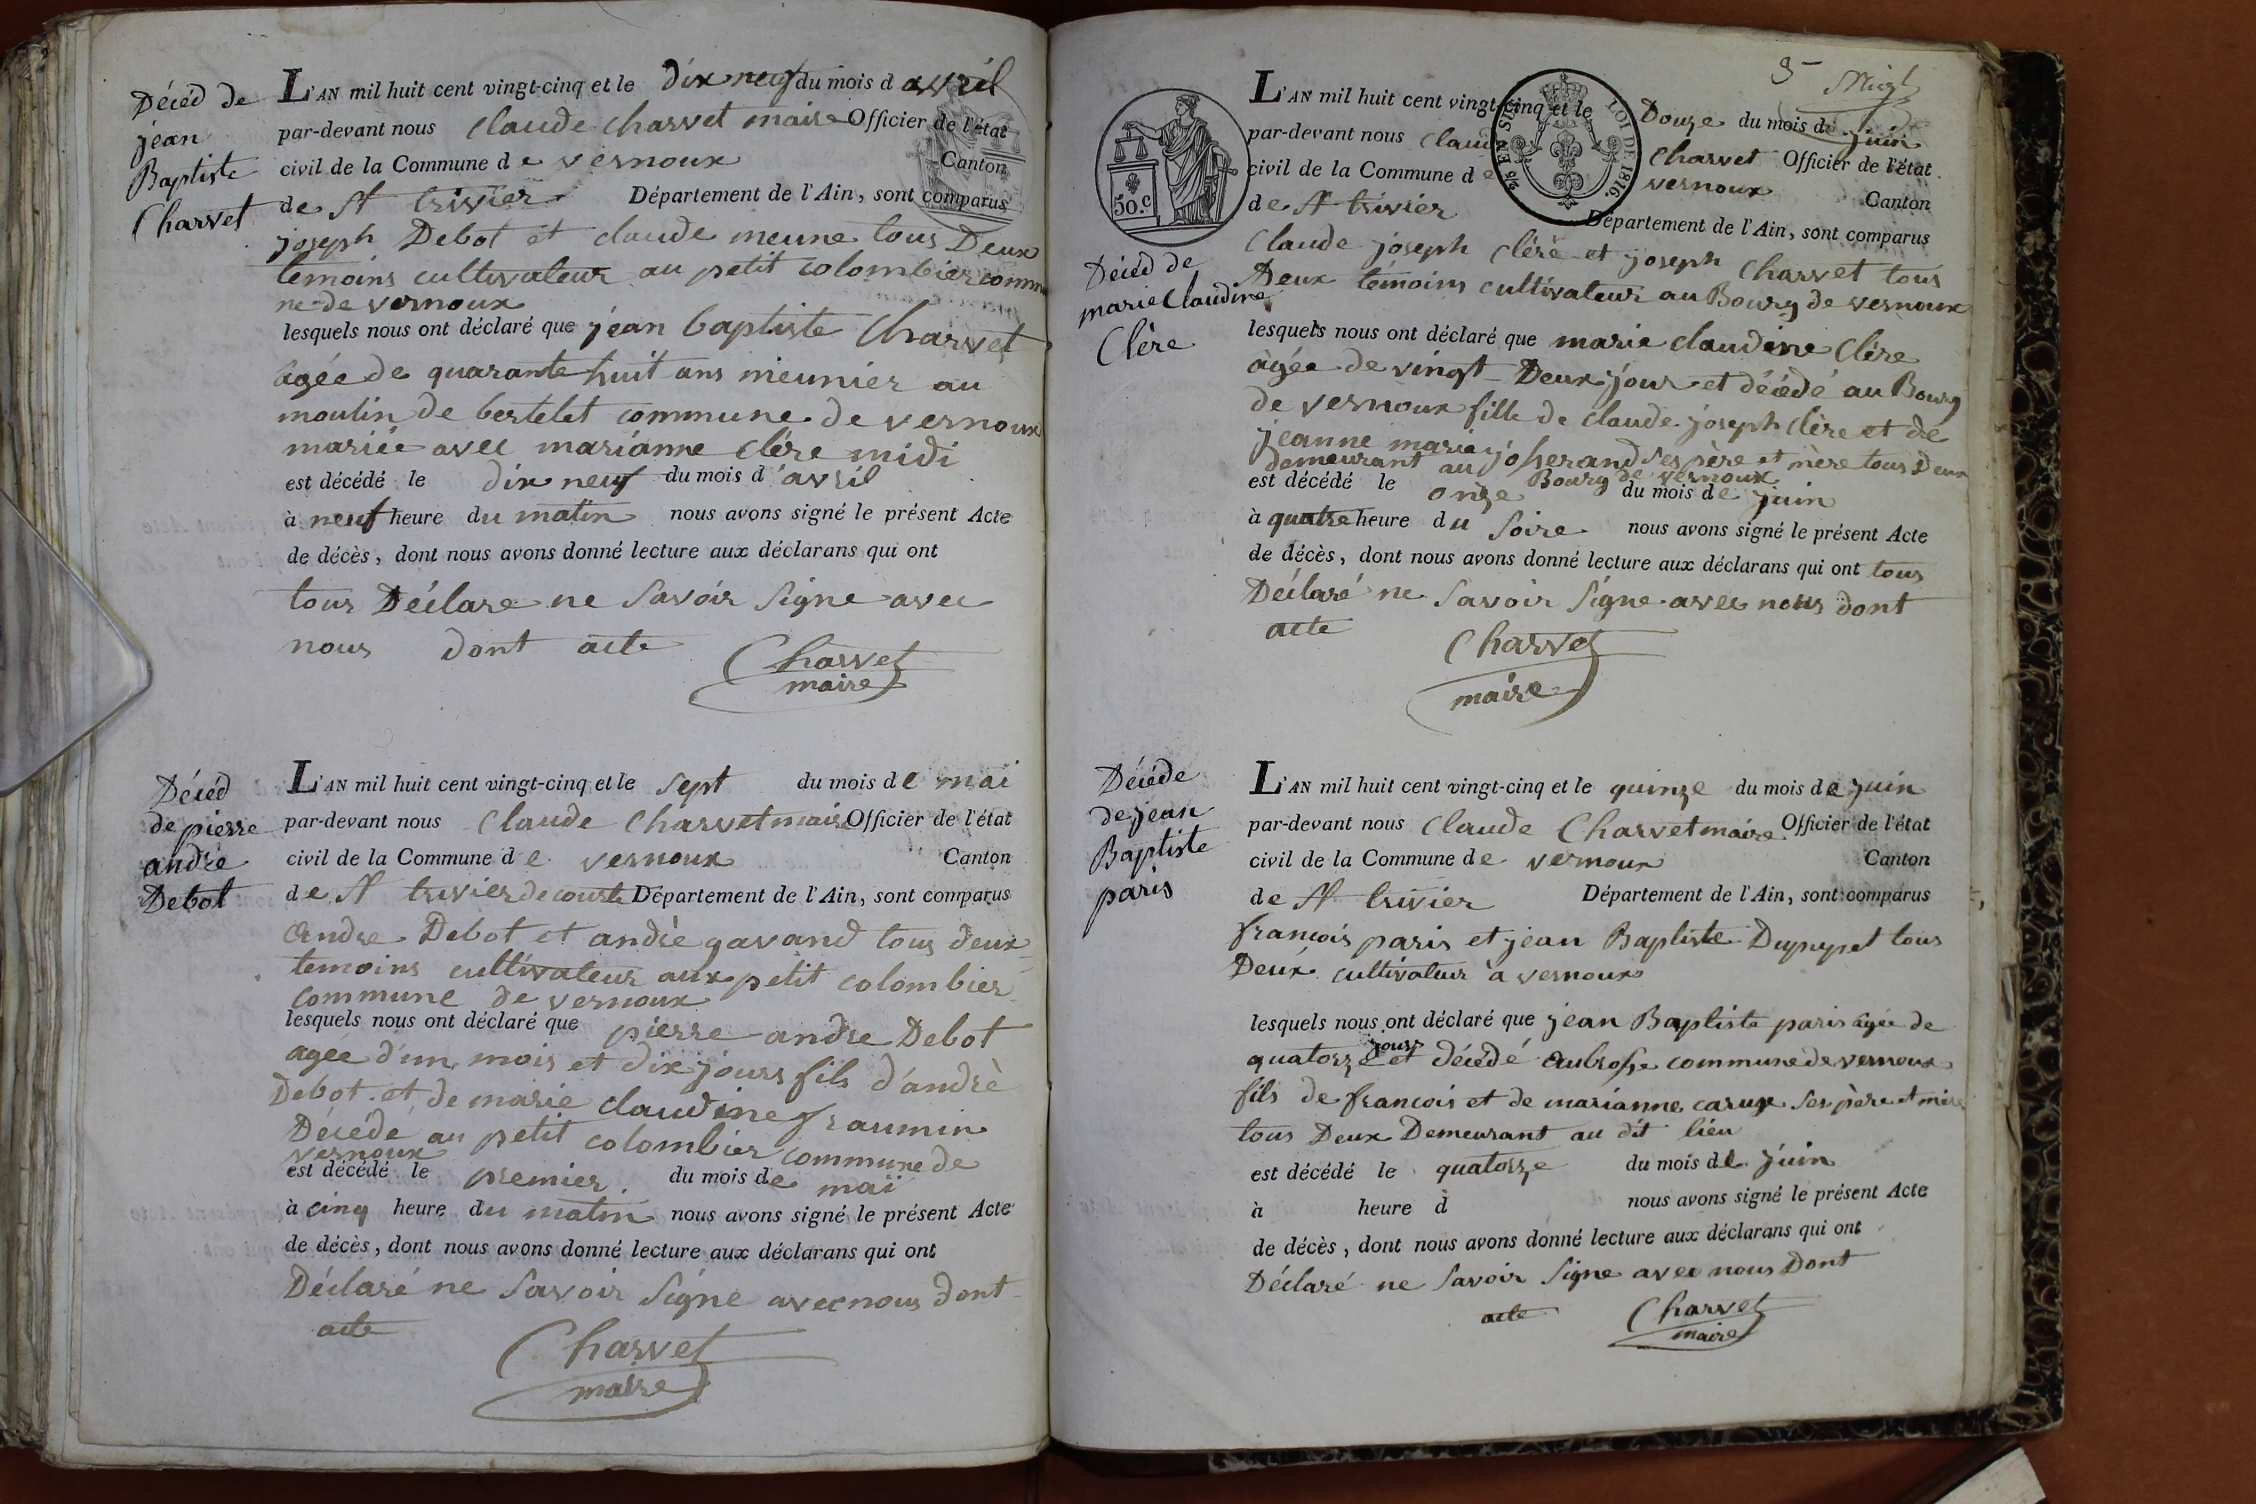 Décéd de
jean
Baptiste
Charvet
L'AN mil huit cent vingt-cinq et le dix neuf du mois d avril
par-devant nous Claude Charvet maire Officier de l'état
civil de la Commune de vernoux Canton
de St trivier Département de l'Ain, sont comparus
joseph Debot et claude meune tous Deux
temoins cultivateur au petit colombier commu
ne de vernoux
lesquels nous ont déclaré que jean baptiste Charvet
agée de quarante huit ans meunier au
moulin de bertelet commune de vernoux
mariée avec marianne Clére midi
est décédé le dix neuf du mois d'avril
à neuf heure du matin nous avons signé le présent Acte
de décès, dont nous avons donné lecture aux déclarans qui ont
tous Déclare ne Savoir Signe avec
nous dont acte
Charvet
maire
Décéd
de pierre
andré
Debot
L'AN mil huit cent vingt-cinq et le Sept du mois de mai
par-devant nous Claude Charvet maire Officier de l'état
civil de la Commune de vernoux Canton
de St trivier de courte Département de l'Ain, sont comparus
andre Debot et andrè gavand tous deux
temoins cultivateur aux petit colombier
commune de vernoux
lesquels nous ont déclaré que pierre andre Debot
agée d'un mois et dix jours fils d'andrè
Debot et de marie claudine fraumin
Décédé au petit colombier commune de
vernoux
est décédé le premier du mois de mai
à cinq heure du matin nous avons signé le présent Acte
de décès, dont nous avons donné lecture aux déclarans qui ont
Déclaré ne Savoir Signé avec nous dont
acte
Charvet
maire
5
50.C
EN SUS
LOI DE 1816
Décéd de
marie Claudine
Clère
L'AN mil huit cent vingt-cinq et le Douze du mois de juin
par-devant nous Claud Charvet Officier de l'état
civil de la Commune de vernoux Canton
de St trivier Département de l'Ain, sont comparus
Claude joseph Clére et joseph Charvet tous
Deux témoins cultivateur au Bourg de vernoux
lesquels nous ont déclaré que marie claudine Clére
âgée de vingt Deux jour et décédé au Bourg
de vernoux fille de claude joseph Clère et de
jeanne marie josserand ses père et mère tous Deux
demeurant au Bourg de vernoux
est décédé le onze du mois de juin
à quatre heure du Soire nous avons signé le présent Acte
de décès, dont nous avons donné lecture aux déclarans qui ont tous
Déclaré ne Savoir Signe avec nous dont
acte
Charvet
maire
Décéde
de jean
Baptiste
paris
L'AN mil huit cent vingt-cinq et le quinze du mois de juin
par-devant nous Claude Charvet maire Officier de l'état
civil de la Commune de vernoux Canton
de St trivier Département de l'Ain, sont comparus
francois paris et jean Baptiste tous
Deux cultivateur à vernoux
lesquels nous ont déclaré que jean Baptiste paris agée de
quatorze jours et décédé commune de vernoux
fils de francois et de marianne Ses père et mère
tous Deux Demeurant au dit lieu
est décédé le quatorze du mois de juin
à heure d nous avons signé le présent Acte
de décès, dont nous avons donné lecture aux déclarans qui ont
Déclaré ne Savoir Signe avec nous Dont
acte
Charvet
maire